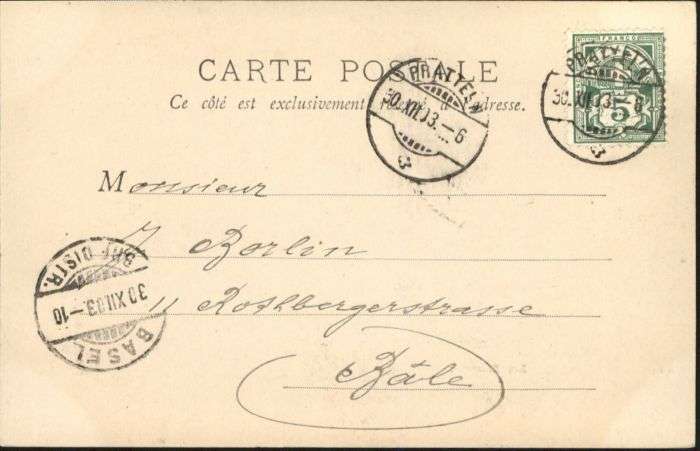 CARTE POSTALE
Ce côté est exclusivement réservé à l'adresse.
FRANCO
5
PRATTELN
30.XII.03.-6
PRATTELN
30.XII.03.-6
Monsieur
Borlin
11 Rothbergerstrasse
Bâle
BASEL
30.XII.03.-10
BRF. DISTR.